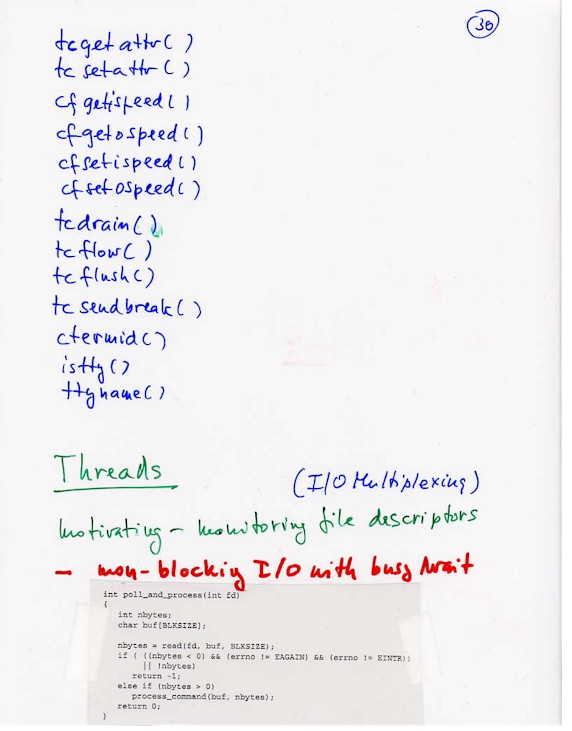 30
tcgetattr()
tcsetattr()
cfgetispeed()
cfgetospeed()
cfsetispeed()
cfsetospeed()
tcdrain()
tcflow()
tcflush()
tcsendbreak()
ctermid()
istty()
ttyname()
Threads (I/O Multiplexing)
motivating - monitoring file descriptors
- non-blocking I/O with busy wait
int poll_and_process(int fd)
{
int nbytes;
char buf[BLKSIZE];
nbytes = read(fd, buf, BLKSIZE);
if ( ((nbytes < 0) && (errno != EAGAIN) && (errno != EINTR))
|| !nbytes)
return -1;
else if (nbytes > 0)
process_command(buf, nbytes);
return 0;
}